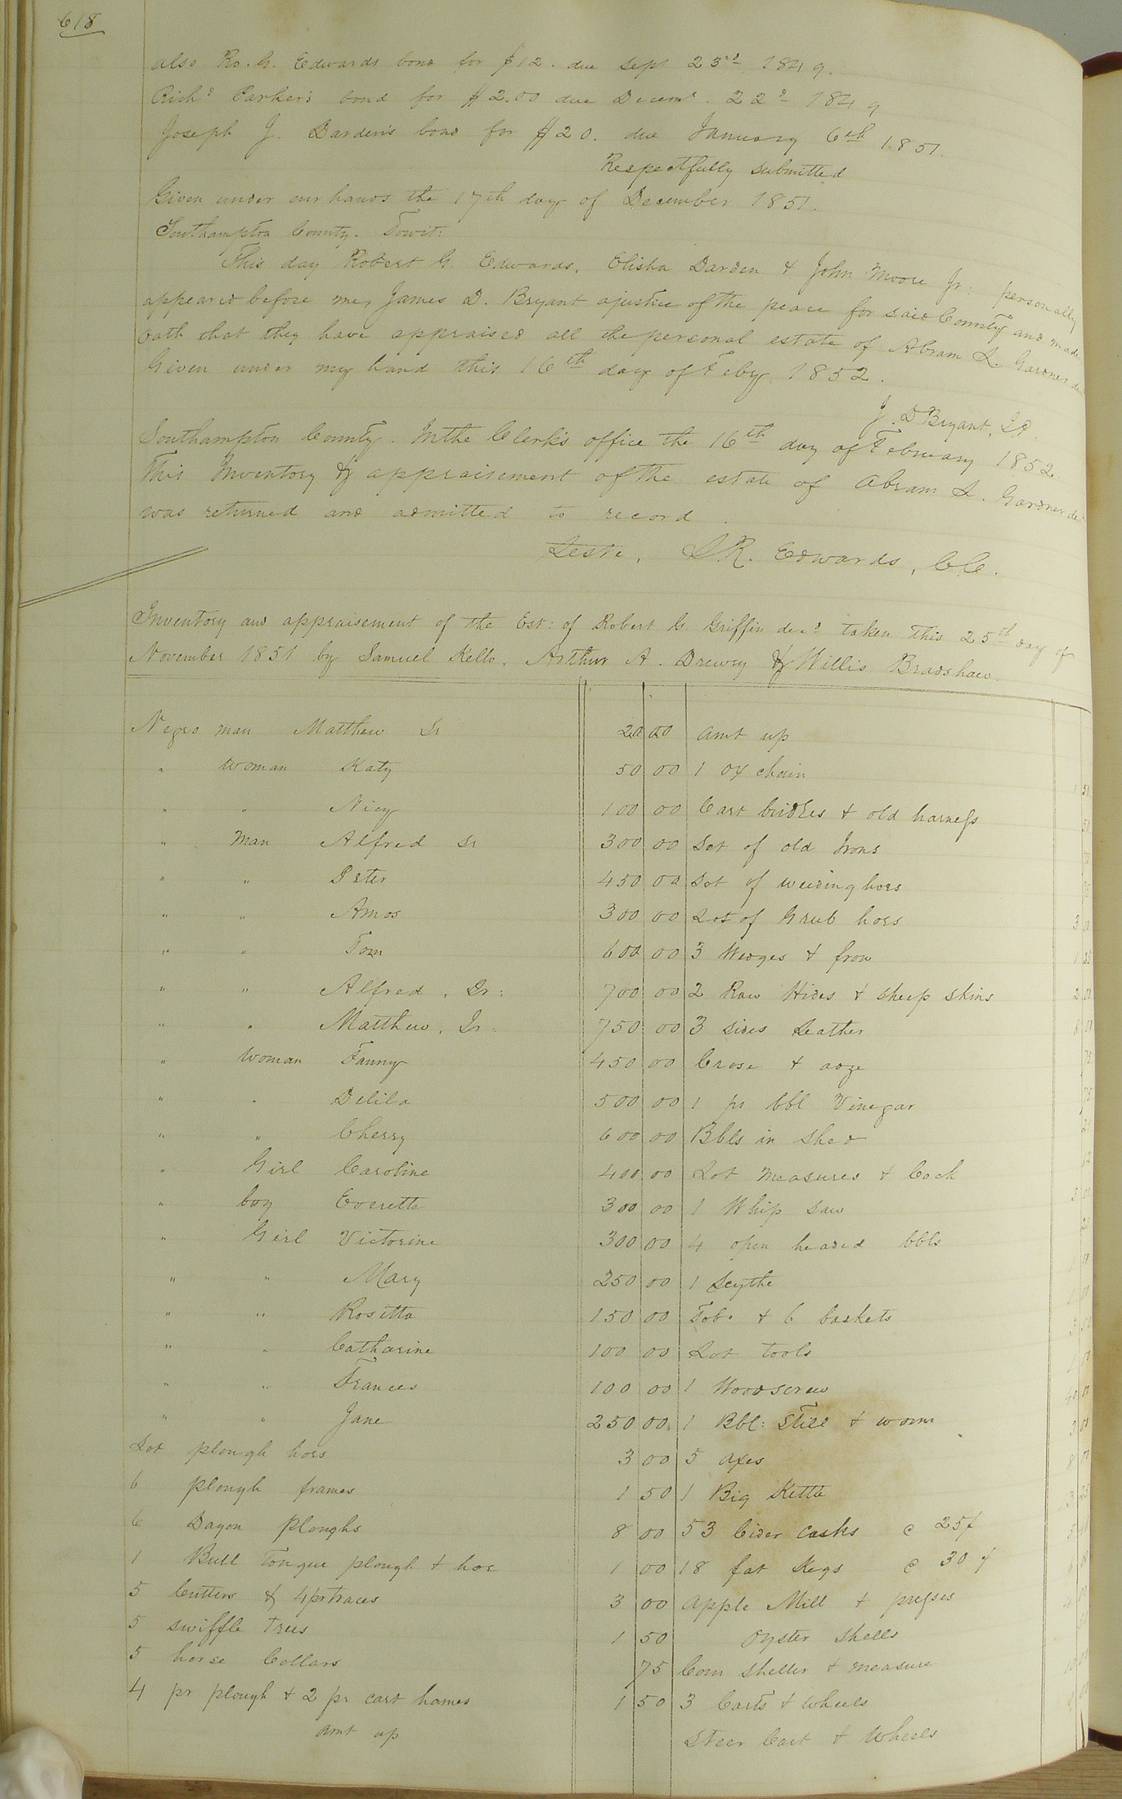 618
also Ro. G. Edwards bond for $12. due Sept 23d 1849.
Richd Parker's bond for $2.00 due Decemr. 22d 1849
Joseph J. Darden's bond for $20. due January 6th 1851.
Respectfully submitted
Given under our hands the 17th day of December 1851.
Southampton County. Towit:
This day Robert G. Edwards, Elisha Darden & John Moore Jr: personally
appeared before me, James D. Bryant a justice of the peace for said County and made
oath that they have appraised all the personal estate of Abram L. Gardner
Given under my hand this 16th day of Feby 1852.
J. D. Bryant, J.P.
Southampton County. In the Clerk's office the 16th day of February 1852
This Inventory & appraisement of the estate of Abram L. Gardner
was returned and admitted to record.
Teste, L R. Edwards, C.C.
Inventory and appraisement of the Est: of Robert G. Griffin decd taken this 25th day of
November 1851 by Samuel Kello, Arthur A. Drewry & Willis Bradshaw.
Negro man Matthew Sr 20 00
" woman Katy 50 00
" " Nicy 100 00
" man Alfred Sr 300 00
" " Peter 450 00
" " Amos 300 00
" " Tom 600 00
" " Alfred, Jr: 700 00
" " Matthew, Jr. 750 00
" Woman Fanny 450 00
" " Delila 500 00
" " Cherry 600 00
" Girl Caroline 400 00
" boy Everette 300 00
" Girl Victorine 300 00
" " Mary 250 00
" " Rositta 150 00
" " Catharine 100 00
" " Frances 100 00
" " Jane 250 00
Lot plough hoes 3 00
6 plough frames 1 50
6 Dagon ploughs 8 00
1 Bull tongue plough & hoe 1 00
5 Cutters & 4 pr traces 3 00
5 swiffle trees 1 50
5 horse Collars 75
4 pr plough & 2 pr cart hames 1 50
amt up
amt up
1 ox chain
Cart bridles & old harness
Lot of old Irons
Lot of weeding hoes
Lot of Grub hoes
3 Wedges & frow
2 Raw Hides & sheep skins
3 sides Leather
Crose & adze
1 pr bbl Vinegar
Bbls in shed
Lot measures & Cock
1 Whip saw
4 open headed bbls
1 Scythe
Tobo & 6 baskets
Lot tools
1 Woodscrew
1 Bbl: Still & worm
5 axes
1 Big Kettle
53 Cider casks @ 25¢
18 fat Kegs @ 30¢
Apple Mill & presses
Oyster shells
Corn sheller & measure
3 Carts & wheels
Steer Cart & Wheels